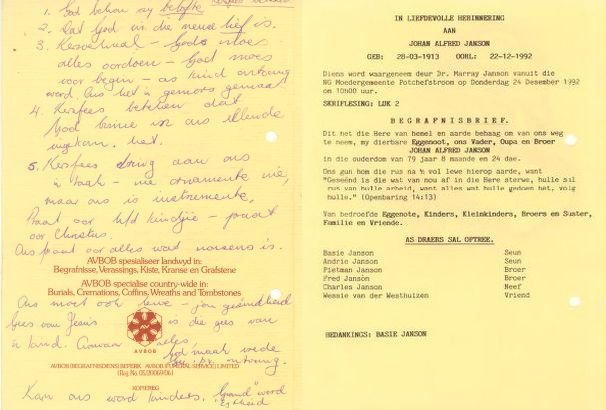 1. God behou sy belofte
2. Dat God in die mense lief is.
3. Kersverhaal – God moes
alles oordoen – God moes
voor begin – as kind ontvang
word. Ons het 'n gemors gemaak
4. Kersfees beteken dat
God binne in ons ellende
ingekom het.
5. Kersfees dring aan ons
'n taak – nie ornamente nie,
maar ons is instrumente.
Praat oor kindjie – praat
oor Christus.
Ons praat oor alles wat mense is.
AVBOB spesialiseer landwyd in:
Begrafnisse, Verassings, Kiste, Kranse en Grafstene
AVBOB specialise country-wide in:
Burials, Cremations, Coffins, Wreaths and Tombstones
Ons moet ook
Gees van Jesus is die gees van
'n land.
AVBOB
AVBOB (BEGRAFNISDIENS) BEPERK AVBOB (FUNERAL SERVICE) LIMITED
KOPIEREG
Kan ons word kinders. "Grand" word
IN LIEFDEVOLLE HERINNERING
AAN
JOHAN ALFRED JANSON
GEB: 28-03-1913 OORL: 22-12-1992
Diens word waargeneem deur Dr. Murray Janson vanuit die
NG Moedergemeente Potchefstroom op Donderdag 24 Desember 1992
om 10h00 uur.
SKRIFLESING: LUK 2
BEGRAFNISBRIEF.
Dit het die Here van hemel en aarde behaag om van ons weg
te neem, my dierbare Eggenoot, ons Vader, Oupa en Broer
JOHAN ALFRED JANSON
in die ouderdom van 79 jaar 8 maande en 24 dae.
Ons gun hom die rus na 'n vol lewe hierop aarde, want
"Geseënd is die wat van nou af in die Here sterwe, hulle sal
rus van hulle arbeid, want alles wat hulle gedoen het, volg
hulle." (Openbaring 14:13)
Van bedroefde Eggenote, Kinders, Kleinkinders, Broers en Suster,
Familie en Vriende.
AS DRAERS SAL OPTREE.
Basie Janson Seun
Andrie Janson Seun
Pietman Janson Broer
Fred Janson Broer
Charles Janson Neef
Wessie van der Westhuizen Vriend
BEDANKINGS: BASIE JANSON